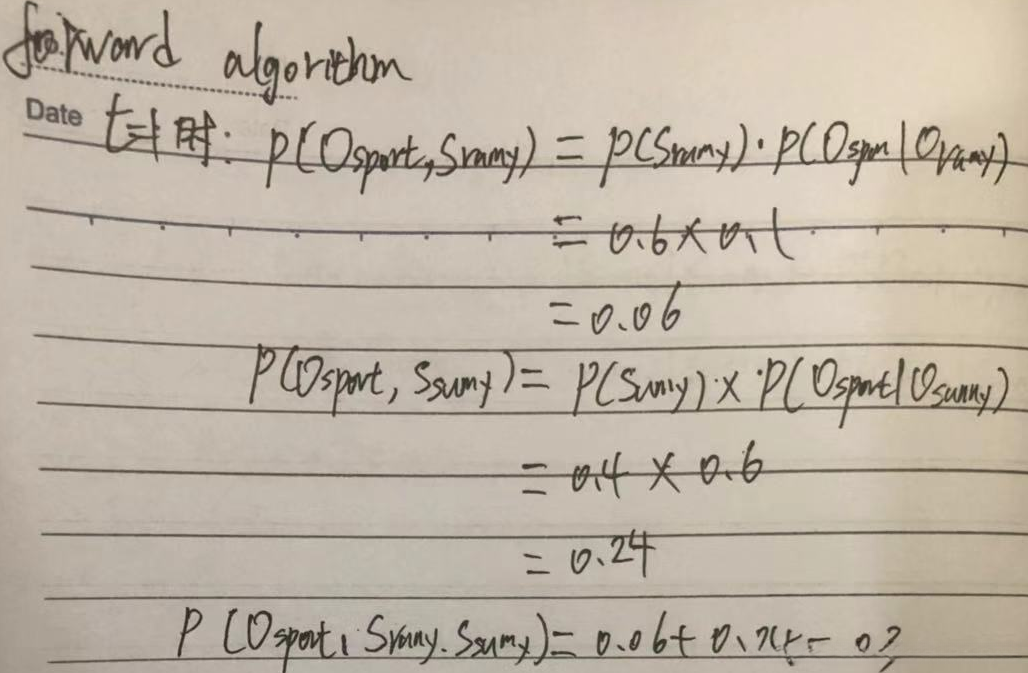 forword algorithm
Date t=1时: P(Osport,Srainy) = P(Srainy)·P(Ospor|Orainy)
= 0.6×0.1
= 0.06
P(Osport, Ssunny) = P(Sunny)·×·P(Osport|Osunny)
= 0.4 × 0.6
= 0.24
P(Osport, Srainy.Ssunny) = 0.06+0.24=0.3